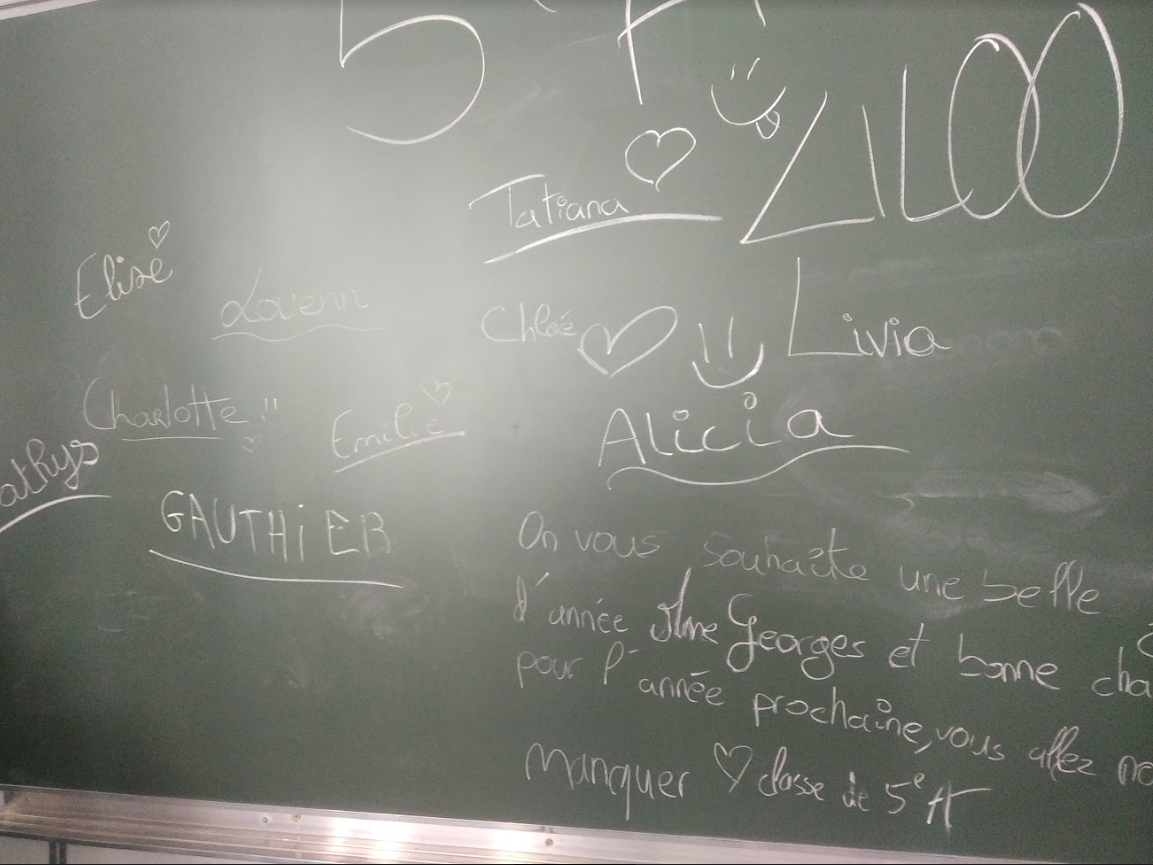 5 A
ZILOO
Tatiana
Elise
Lovenn
Chloé
Livia
Charlotte !!
Emilie
Alicia
athys
GAUTHIER
On vous souhaîte une belle
d'année Mme Georges et bonne cha
pour l'année prochaîne, vous allez no
manquer classe de 5e A